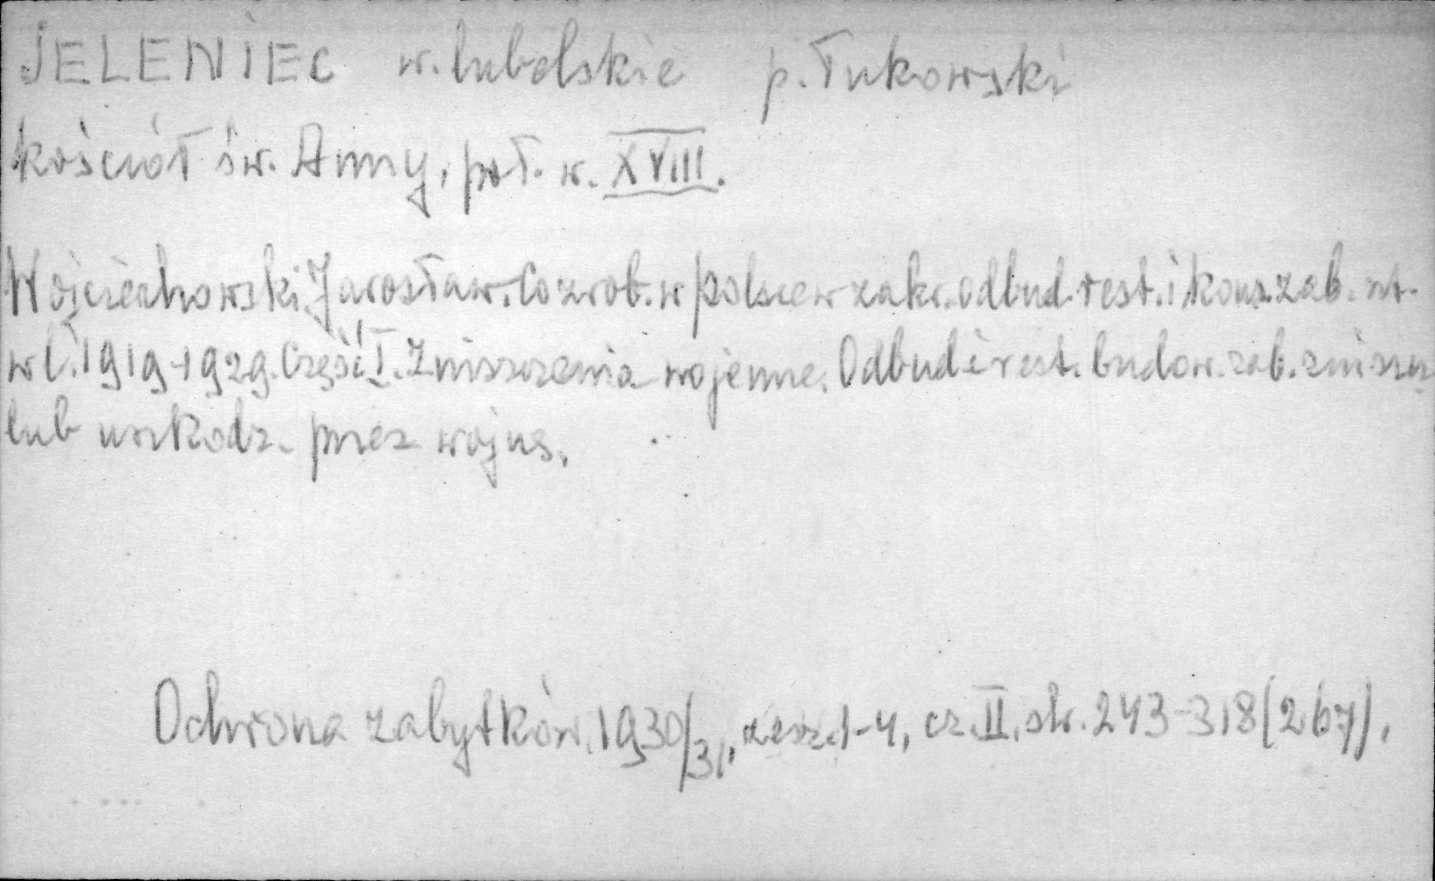 JELENIEC w. lubelskie p. Łukowski
kościół św. Anny, poł. w. XVIII.
Wojciechowski Jarosław. Co zrob. w Polsce w zakr. odbud. rest. i kons. zab. szt.
w l. 1919-1929. Część I. Zniszczenia wojenne. Odbud i rest. budow. zab. zniszcz.
lub uszkodz. przez wojnę.
Ochrona zabytków, 1930/31, zesz. 1-4, cz. II, str. 243-318 (267).